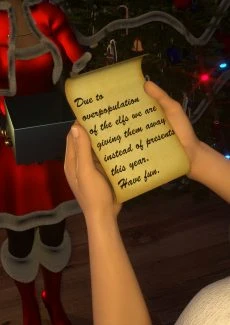 Due to
overpopulation
of the elfs we are
giving them away
instead of presents
this year.
Have fun.